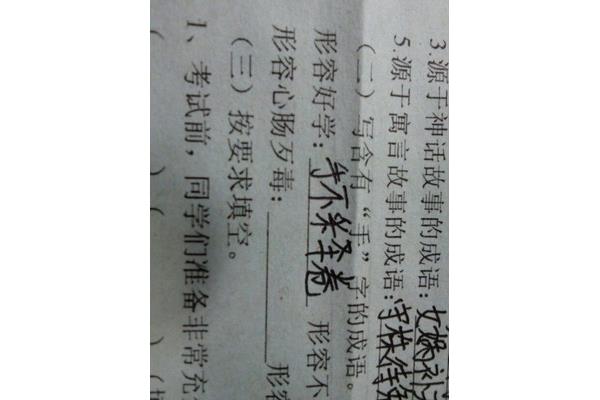 3.源于神话故事的成语:女娲补
5.源于寓言故事的成语:守株待
(二)写含有“手”字的成语。
形容好学:手不释卷 形容不
形容心肠歹毒: 形容
(三)按要求填空。
1、考试前,同学们准备非常充
( ) (